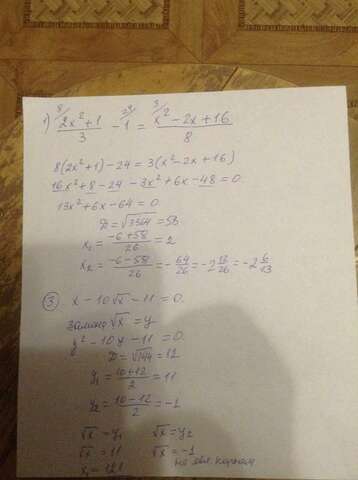 1) 8/ 2x²+1 / 3 - 24/ 1 = 3/ x²-2x+16 / 8
8(2x²+1)-24=3(x²-2x+16)
16x²+8-24-3x²+6x-48=0
13x²+6x-64=0
D=√3364=58
x₁=(-6+58)/26=2
x₂=(-6-58)/26=-64/26=-2 12/26=-2 6/13
③ x-10√x-11=0.
Замена √x=y
y²-10y-11=0.
D=√144=12
y₁=(10+12)/2=11
y₂=(10-12)/2=-1
√x=y₁ √x=y₂
√x=11 √x=-1.
x₁=121 не явл. корнем